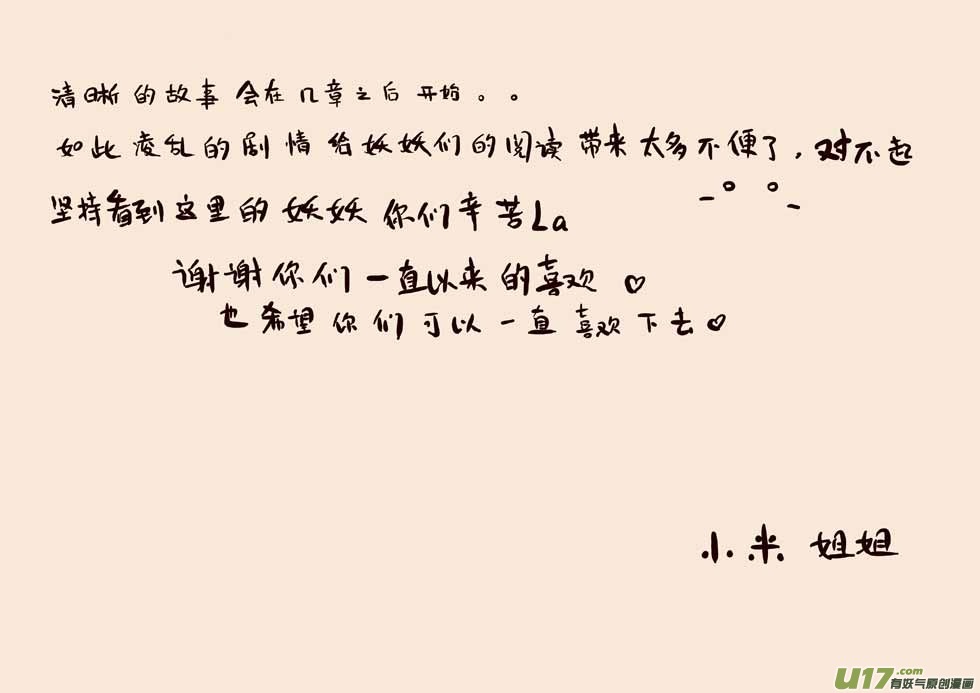 清晰的故事会在几章之后开始。。
如此凌乱的剧情给妖妖们的阅读带来太多不便了,对不起
坚持看到这里的妖妖你们辛苦La
谢谢你们一直以来的喜欢♡
也希望你们可以一直喜欢下去♡
小米姐姐
U17.com
有妖气原创漫画